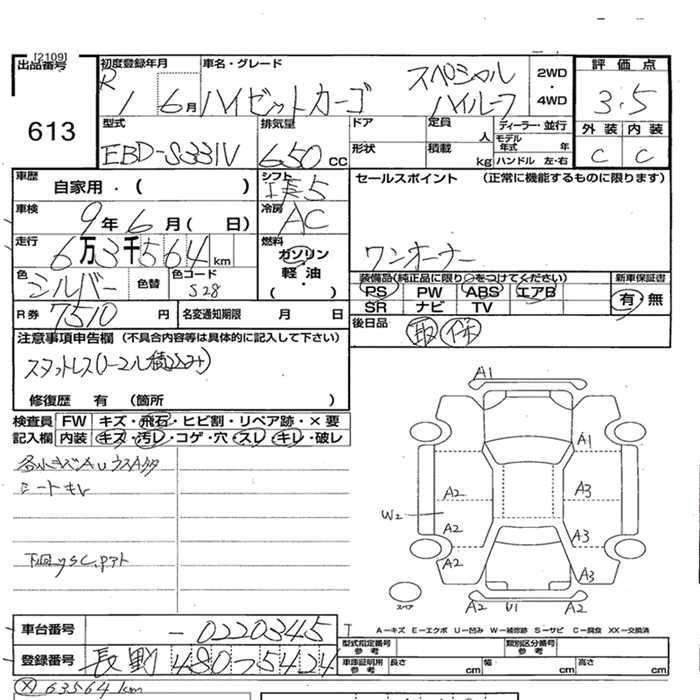 [2109]
出品番号 初度登録年月 車名・グレード 評価点
613
R1 6月 ハイゼットカーゴ スペシャル ハイルーフ 2WD・4WD 3.5
型式 排気量 ドア 定員 人 ディーラー・並行 外装 内装
EBD-S331V 650 CC 形状 積載 kg モデル年式 年 ハンドル 左・右 C C
車歴 自家用・( ) シフト 5 セールスポイント (正常に機能するものに限ります)
車検 9年6月( 日) 冷房 AC
走行 6万3千564km 燃料 ガソリン・軽油・( ) ワンオーナー
色 シルバー 色替 色コード S28
装備品(純正品に限り○をつけてください) 新車保証書
PS PW ABS エアB 有・無
SR ナビ TV
R券 7510円 名変通知期限 月 日 後日品 取 保
注意事項申告欄 (不具合内容等は具体的に記入して下さい)
スタットレス(ノーマル積込み)
修復歴 有 (箇所 )
検査員 FW キズ・飛石・ヒビ割・リペア跡・×要
記入欄 内装 キズ・汚レ・コゲ・穴・スレ・キレ・破レ
シートキレ
A1
A1
A2 A3
W2
A2 A3
A2 A3
A2 U1 A2
スペア
A-キズ E-エクボ U-凹み W-補修跡 S-サビ C-腐食 XX-交換済
車台番号 -0220345
型式指定番号 参考 類別区分番号 参考
登録番号 長野 480 そ 5424
車庫証明用 参考 長さ cm 幅 cm 高さ cm
63564km